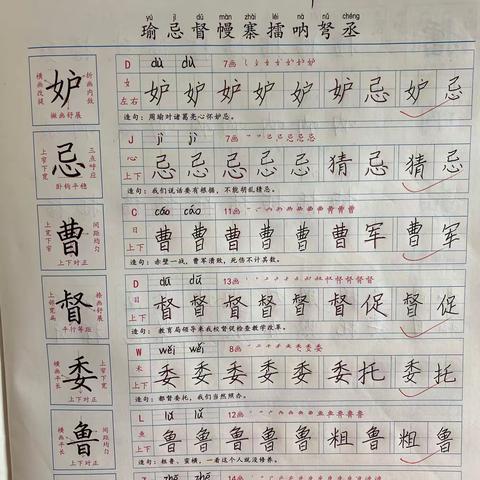 yú jì dū màn zhài léi nà nǔ chéng
瑜 忌 督 幔 寨 擂 呐 弩 丞
横画改提 妒 折画内敛
撇画舒展
D dù dù 7画
女 左右 妒 妒 妒 妒 妒 妒 忌 妒 忌
造句：周瑜对诸葛亮心怀妒忌。
上窄下宽 忌 三点呼应
卧钩平稳
J jì jì 7画
心 上下 忌 忌 忌 忌 忌 猜 忌 猜 忌
造句：我们说话要有根据，不能胡乱猜忌。
上宽下窄 曹 间距均匀
上下对正
C cáo cáo 11画
日 上下 曹 曹 曹 曹 曹 曹 军 曹 军
造句：赤壁一战，曹军溃败，死伤不计其数。
上部宽扁 督 捺画舒展
平行等距
D dū dū 13画
目 上下 督 督 督 督 督 督 促 督 促
造句：教育局领导来我校督促检查教学改革。
横画平长 委 上窄下宽
上下对正
W wěi wěi 8画
禾 上下 委 委 委 委 委 委 托 委 托
造句：都督委托，我们当然照办。
横画平长 鲁 间距均匀
上下对正
L lǔ lǔ 12画
鱼 上下 鲁 鲁 鲁 鲁 鲁 粗 鲁 粗 鲁
造句：粗鲁、蛮横，一看这个人就没修养。